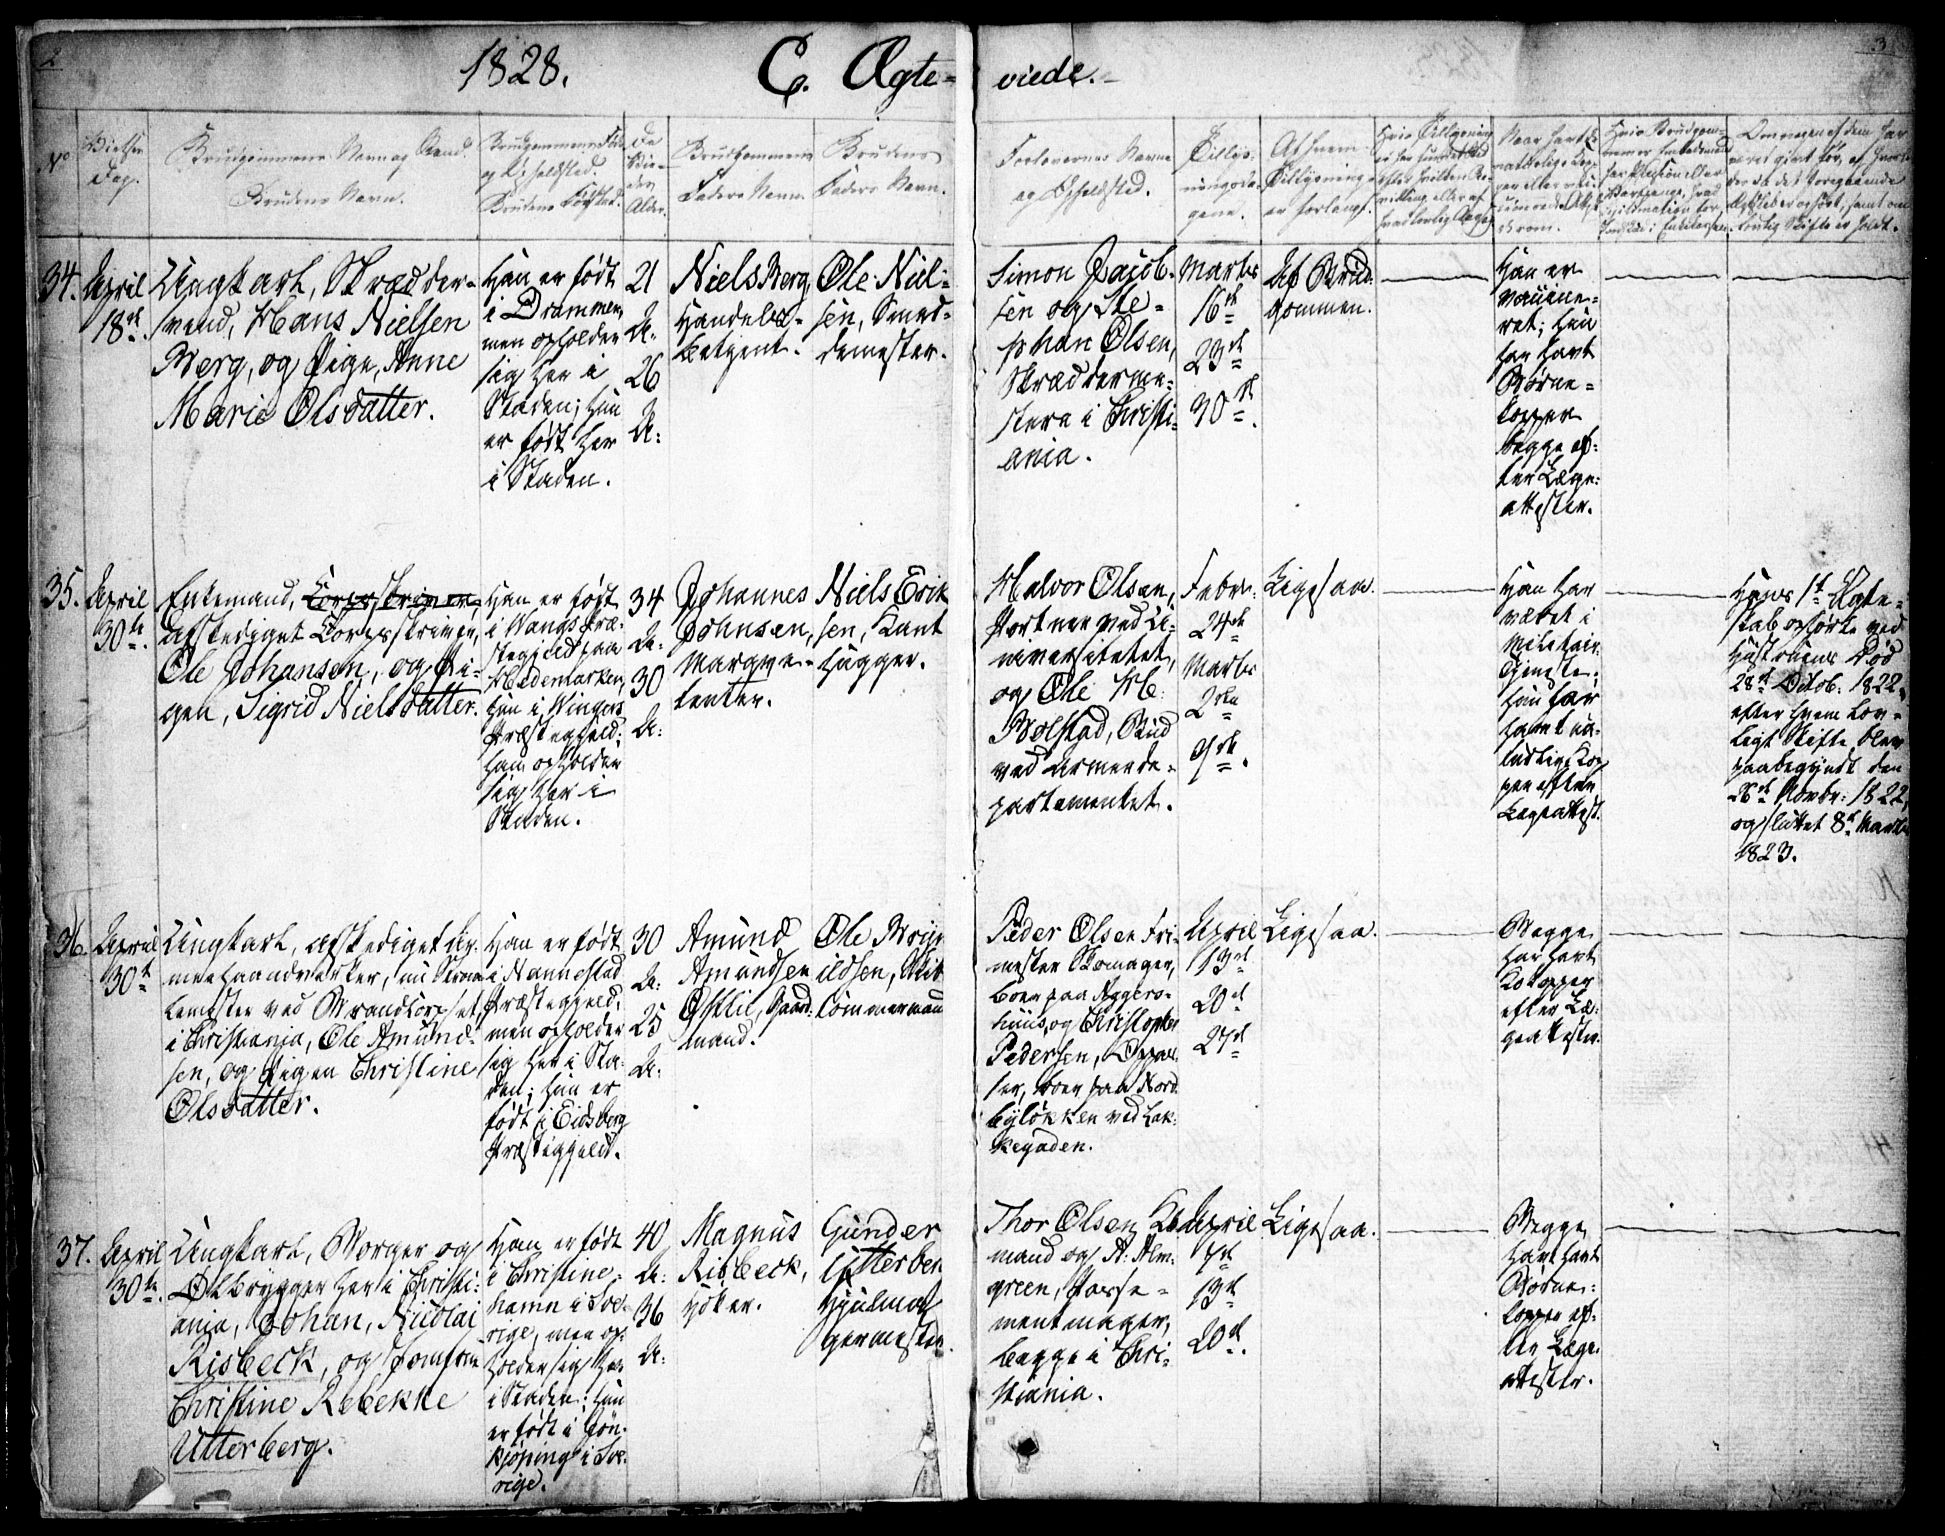 2
1828.
C. Ægte-
viede.
3
No
Vielses
Dag.
Brudgommens Navn og Stand.
Brudens Navn.
Brudgommens Føde
og Opholdsted.
Brudens Fødested.
De
Vie-
des
Alder.
Brudgommens
Faders Navn.
Brudens
Faders Navn.
Forlovernes Navne
og Opholdsted.
Tillys-
ningsda-
gene.
Af hvem
Tillysning
er forlangt.
34.
April
18de.
Ungkarl, Skrædder-
svend, Hans Nielsen
Berg, og Pige, Anne
Marie Olsdatter.
Han er født
i Drammen,
men opholder
sig her i
Staden; hun
er født her
i Staden.
21
A:
26
A:
Niels Berg,
Handels-
betjent.
Ole Niel-
sen, Smed-
demester.
Simon Jacob-
sen og Ste-
phan Olsen,
Skrædderme-
stere i Christi-
ania.
Marts
16de
23de
30te.
Af Brud-
gommen.
Han er
vaccine-
ret; hun
har havt
Børne-
kopper
begge ef-
ter Læge-
attester.
35.
April
30te.
Enkemand, Corpsskriver,
afskediget Corpsskriver,
Ole Johansen, og Pi-
gen, Sigrid Nielsdatter.
Han er født
i Vangs Præ-
stegjeld paa
Hedemarken,
hun i Vingers
Præstegjeld;
han opholder
sig her i
Staden.
34
A:
30
A:
Johannes
Johnsen,
Marqve-
tenter.
Niels Erik-
sen, Kant
hugger.
Halvor Olsen,
Portner ved U-
niversitetet,
og Ole H:
Bolstad, Bud
ved Armeede-
partementet.
Febr:
24de
Marts
2den
9de.
Ligesaa.
Han har
været i
Militair
Tjeneste;
hun har
havt na-
turlige Kop
per efter
Lægeattest.
Hans 1te Ægte-
skab ophørte ved
Hustruens Død
28de Octob. 1822,
efter hvem Lov-
ligt Skifte blev
paabegyndt den
26de Novbr: 1822,
og sluttet 8de Marts
1823.
36.
April
30te
Ungkarl, afskediget Ar-
meehaandverker, nu
ved Brandcorpset
i Christiania, Ole Amund-
sen, og Pigen Christine
Olsdatter.
Han er født
i Nannestad
Præstegjeld,
men opholder
sig her i Sta-
den; hun er
født i Eidsberg
Præstegjeld.
30
A:
25
A:
Amund
Amundsen
Østlie, Gaard-
mand.
Ole Bryn-
ildsen, Skibs
tømmermand
Peder Olsen Fri-
mester Skomager,
boer paa Aggers-
huus, og Christopher
Pedersen, Oppas-
ser, boer paa Nord
byløkken ved Lak-
kegaden.
April
13de
20de
27de
Ligesaa.
Begge
har havt
Kokopper
efter Læ-
geattester.
37.
April
30te.
Ungkarl, Borger og
Ølbrygger her i Christi-
ania, Johan, Nicolai
Risbeck, og Jomfrue
Christine Rebekke
Utterberg.
Han er født
i Christine-
hamn i Sve-
rige, men op-
holder sig her
i Staden; hun
er født i Jøn-
kjøping i Sve-
rige.
40
A:
36
A:
Magnus
Risbeck,
Høker.
Gunder
Utterberg
Hjulma-
germester.
Thor Olsen,
mand og A: Alm-
green, Parse-
mentmager,
begge i Chri-
stiania.
April
7de
13de
20de.
Ligesaa.
Begge
have havt
Børne-
kopper ef-
ter Læge-
attester.